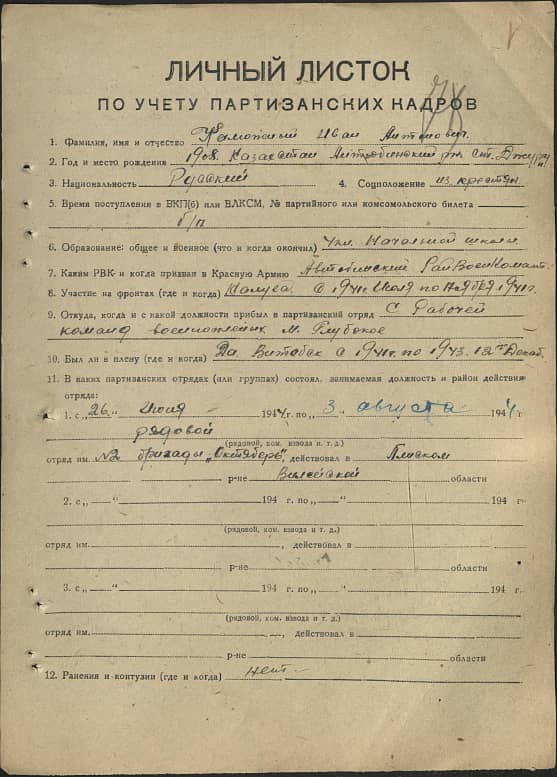 78
ЛИЧНЫЙ ЛИСТОК
ПО УЧЕТУ ПАРТИЗАНСКИХ КАДРОВ
1. Фамилия, имя и отчество Иван Антонович
2. Год и место рождения 1908. Казахстан ст.
3. Национальность Русский 4. Соцположение из крестьян
5. Время поступления в ВКП(б) или ВЛКСМ, № партийного или комсомольского билета
б/п
6. Образование: общее и военное (что и когда окончил) Начальной школы
7. Каким РВК и когда призван в Красную Армию РайВоенКомат
8. Участие на фронтах (где и когда) Калуга с 1941 Июля по Ноября 1941г.
9. Откуда, как и с какой должности прибыл в партизанский отряд С Рабочей
команд военнопленных м. Глубокое
10. Был ли в плену (где и когда) Да. Витебск с 1941г. по 1943.
11. В каких партизанских отрядах (или группах) состоял, занимаемая должность и район действия
отряда:
1. с „26„ Июня 1944 г. по „3“ августа 1944 г.
рядовой
(рядовой, ком. взвода и т. д.)
отряд им. №2 бригады „Октяберь“, действовал в Плиском
р-не Вилейской области
2. с „ “ 194 г. по „ “ 194 г.
(рядовой, ком. взвода и т. д.)
отряд им. , действовал в
р-не области
3. с „ “ 194 г. по „ “ 194 г.
(рядовой, ком. взвода и т. д.)
отряд им. , действовал в
р-не области
12. Ранения и контузии (где и когда) нет